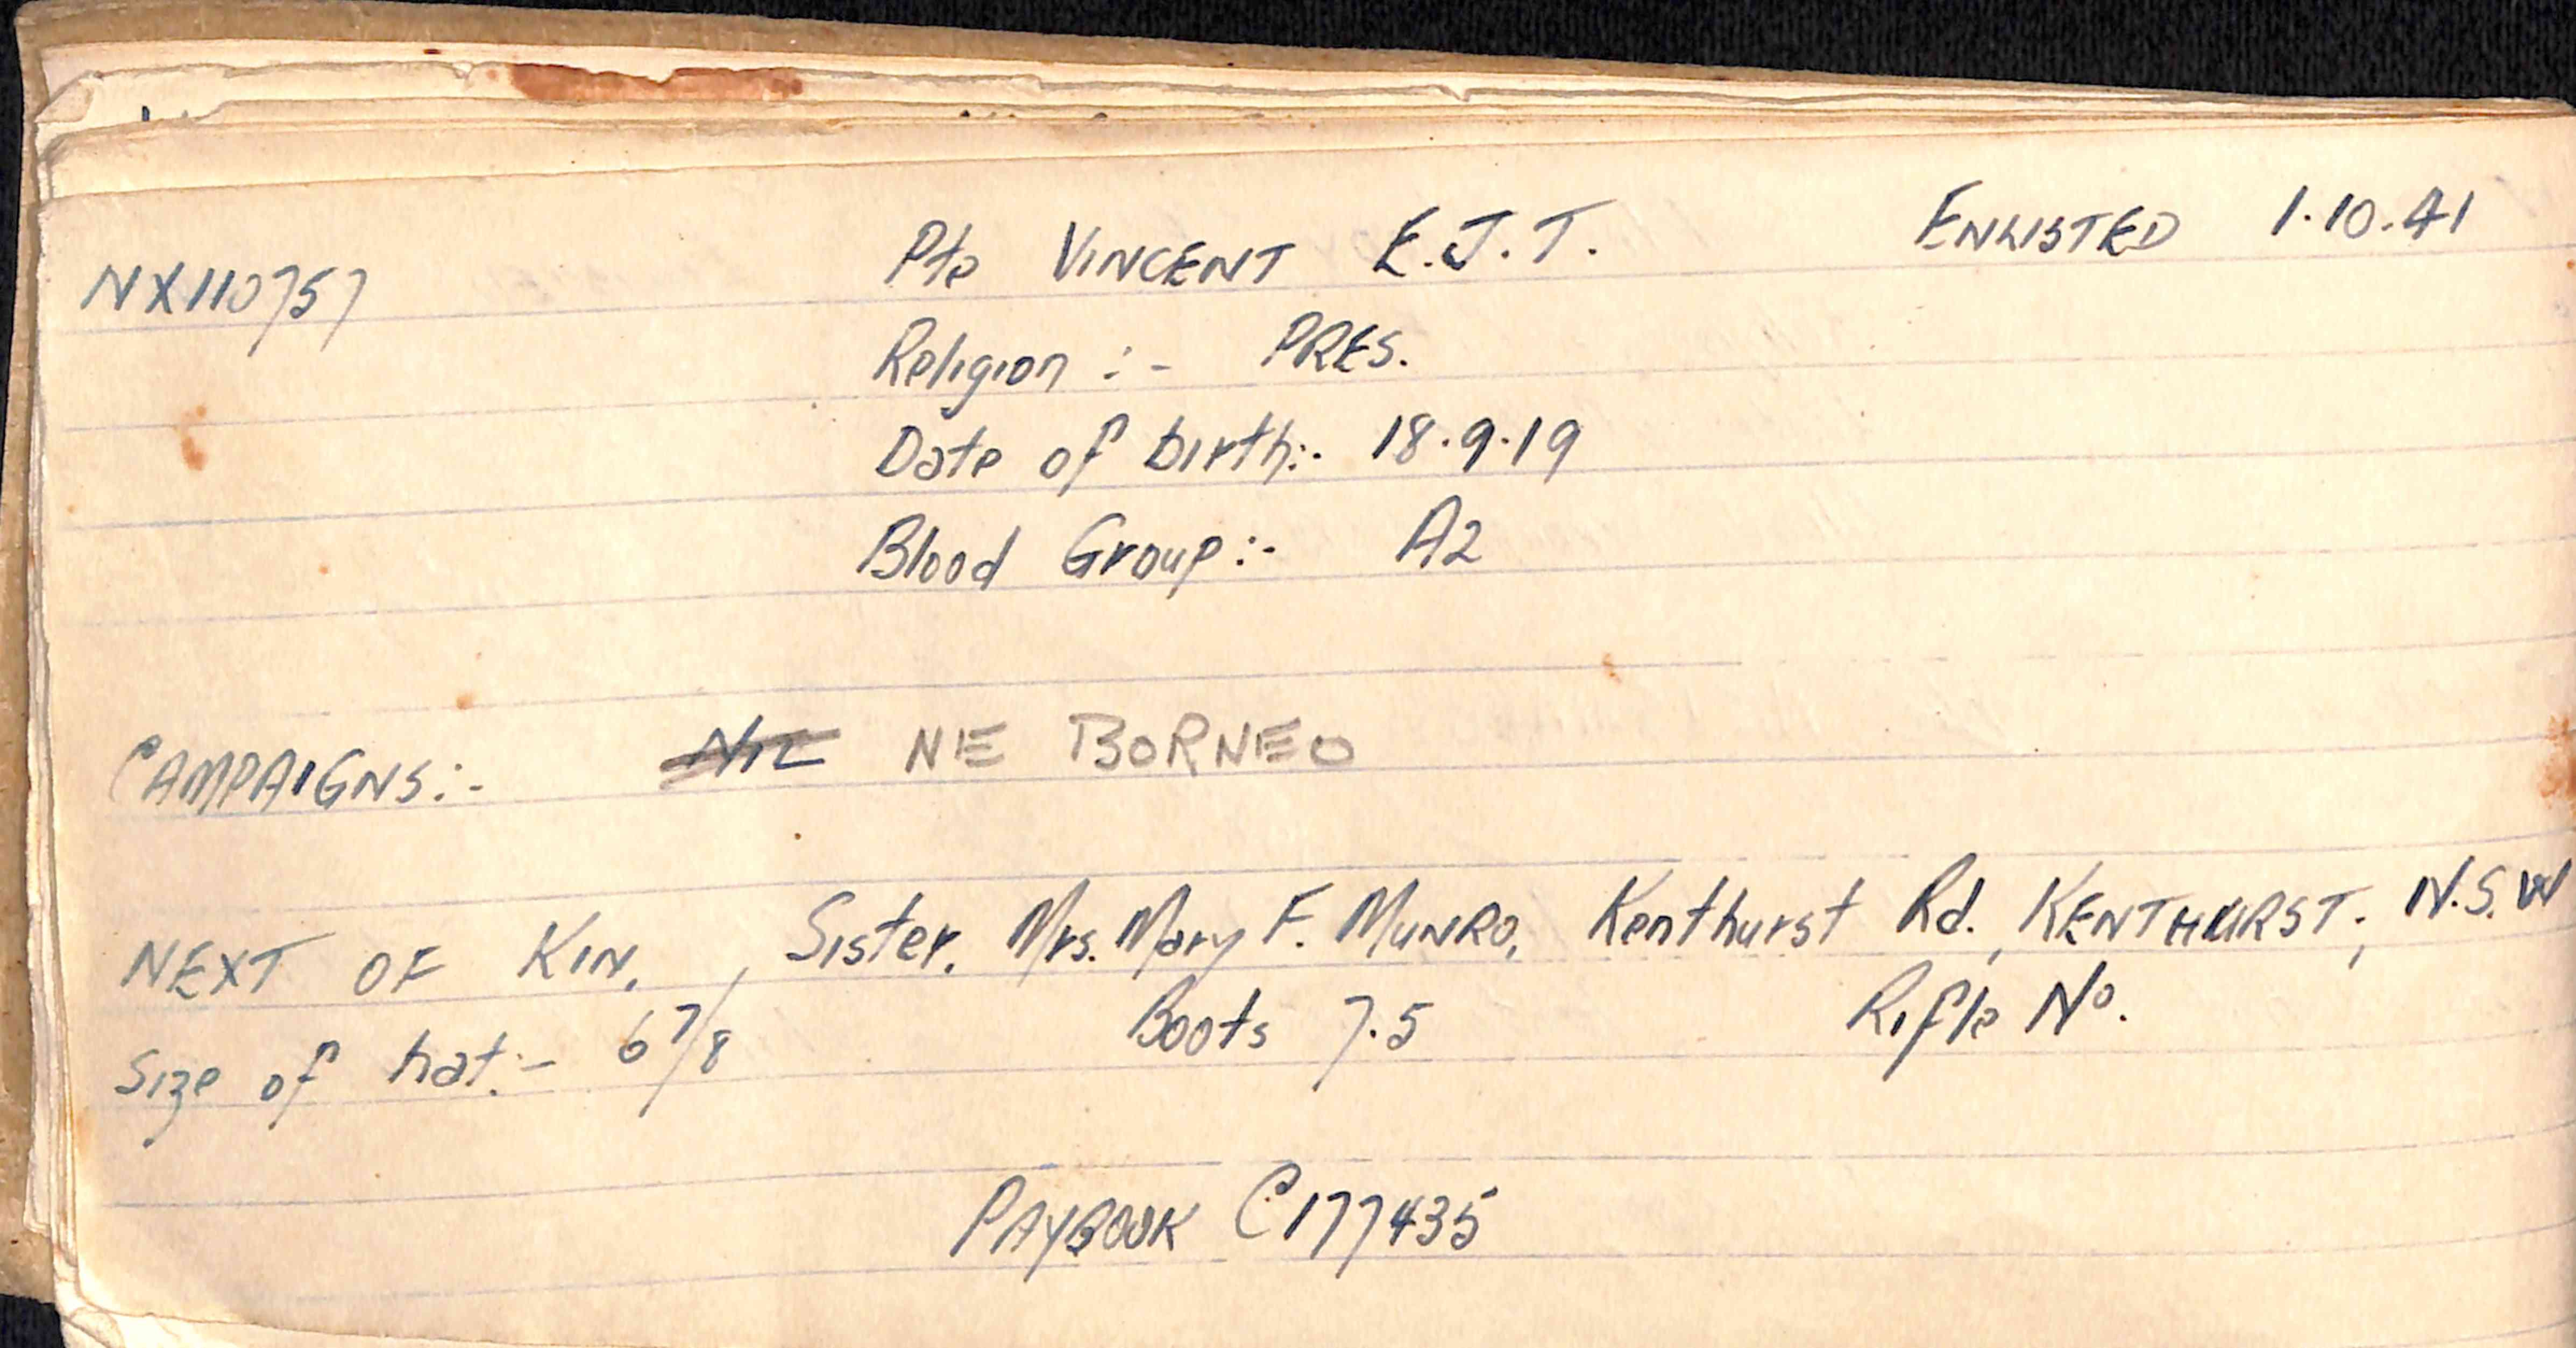 NX110757 Pte VINCENT E.J.T. ENLISTED 1.10.41
Religion :- PRES.
Date of birth:- 18.9.19
Blood Group:- A2
CAMPAIGNS:- NIL NE BORNEO
NEXT OF KIN, Sister, Mrs. Mary F. MUNRO, Kenthurst Rd., KENTHURST, N.S.W
Size of hat:- 6 7/8 Boots 7.5 Rifle No.
PAYBOOK C177435